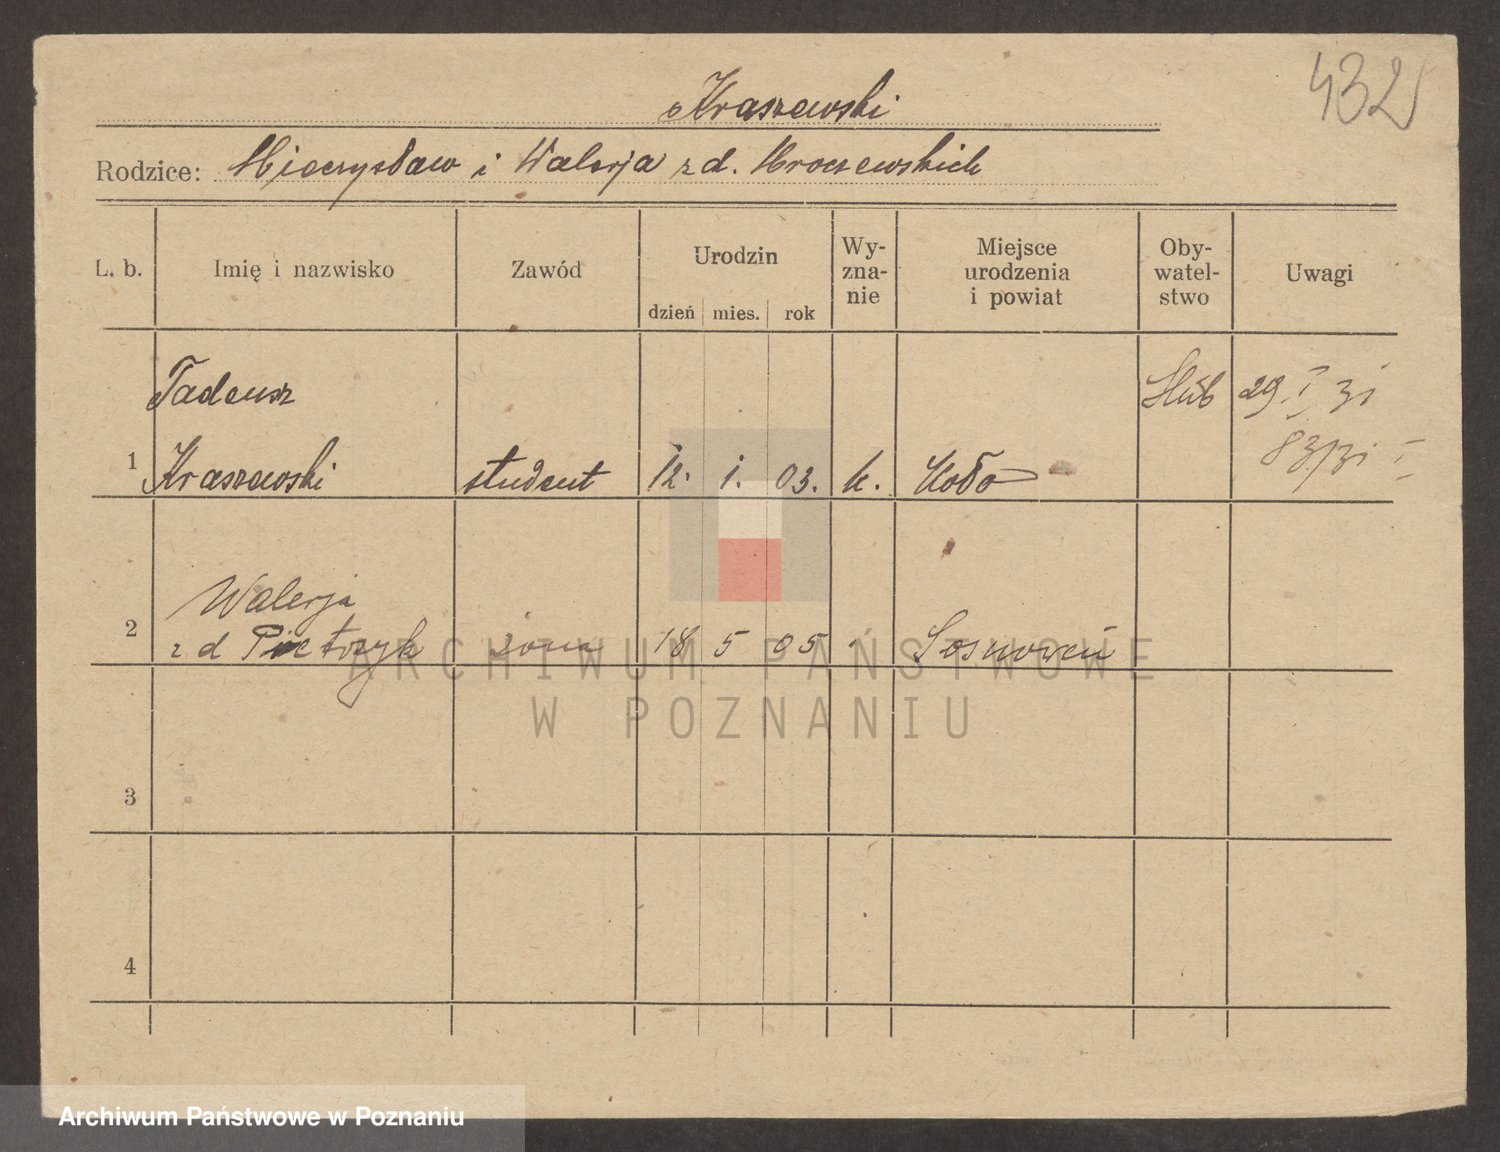 4325
Kraszewski
Rodzice: Mieczysław i Walerja z d. Mroczewskich
L. b. Imię i nazwisko Zawód Urodzin dzień mies. rok Wy-
zna-
nie Miejsce
urodzenia
i powiat Oby-
watel-
stwo Uwagi
Tadeusz Ślub 29. I 31
83/31 I
1 Kraszewski student 12. 1. 03. k. Koło
Walerja
2 z d Pietrzyk żona 18 5 05 Sosnowcu
3
4
ARCHIWUM PAŃSTWOWE
W POZNANIU
Archiwum Państwowe w Poznaniu